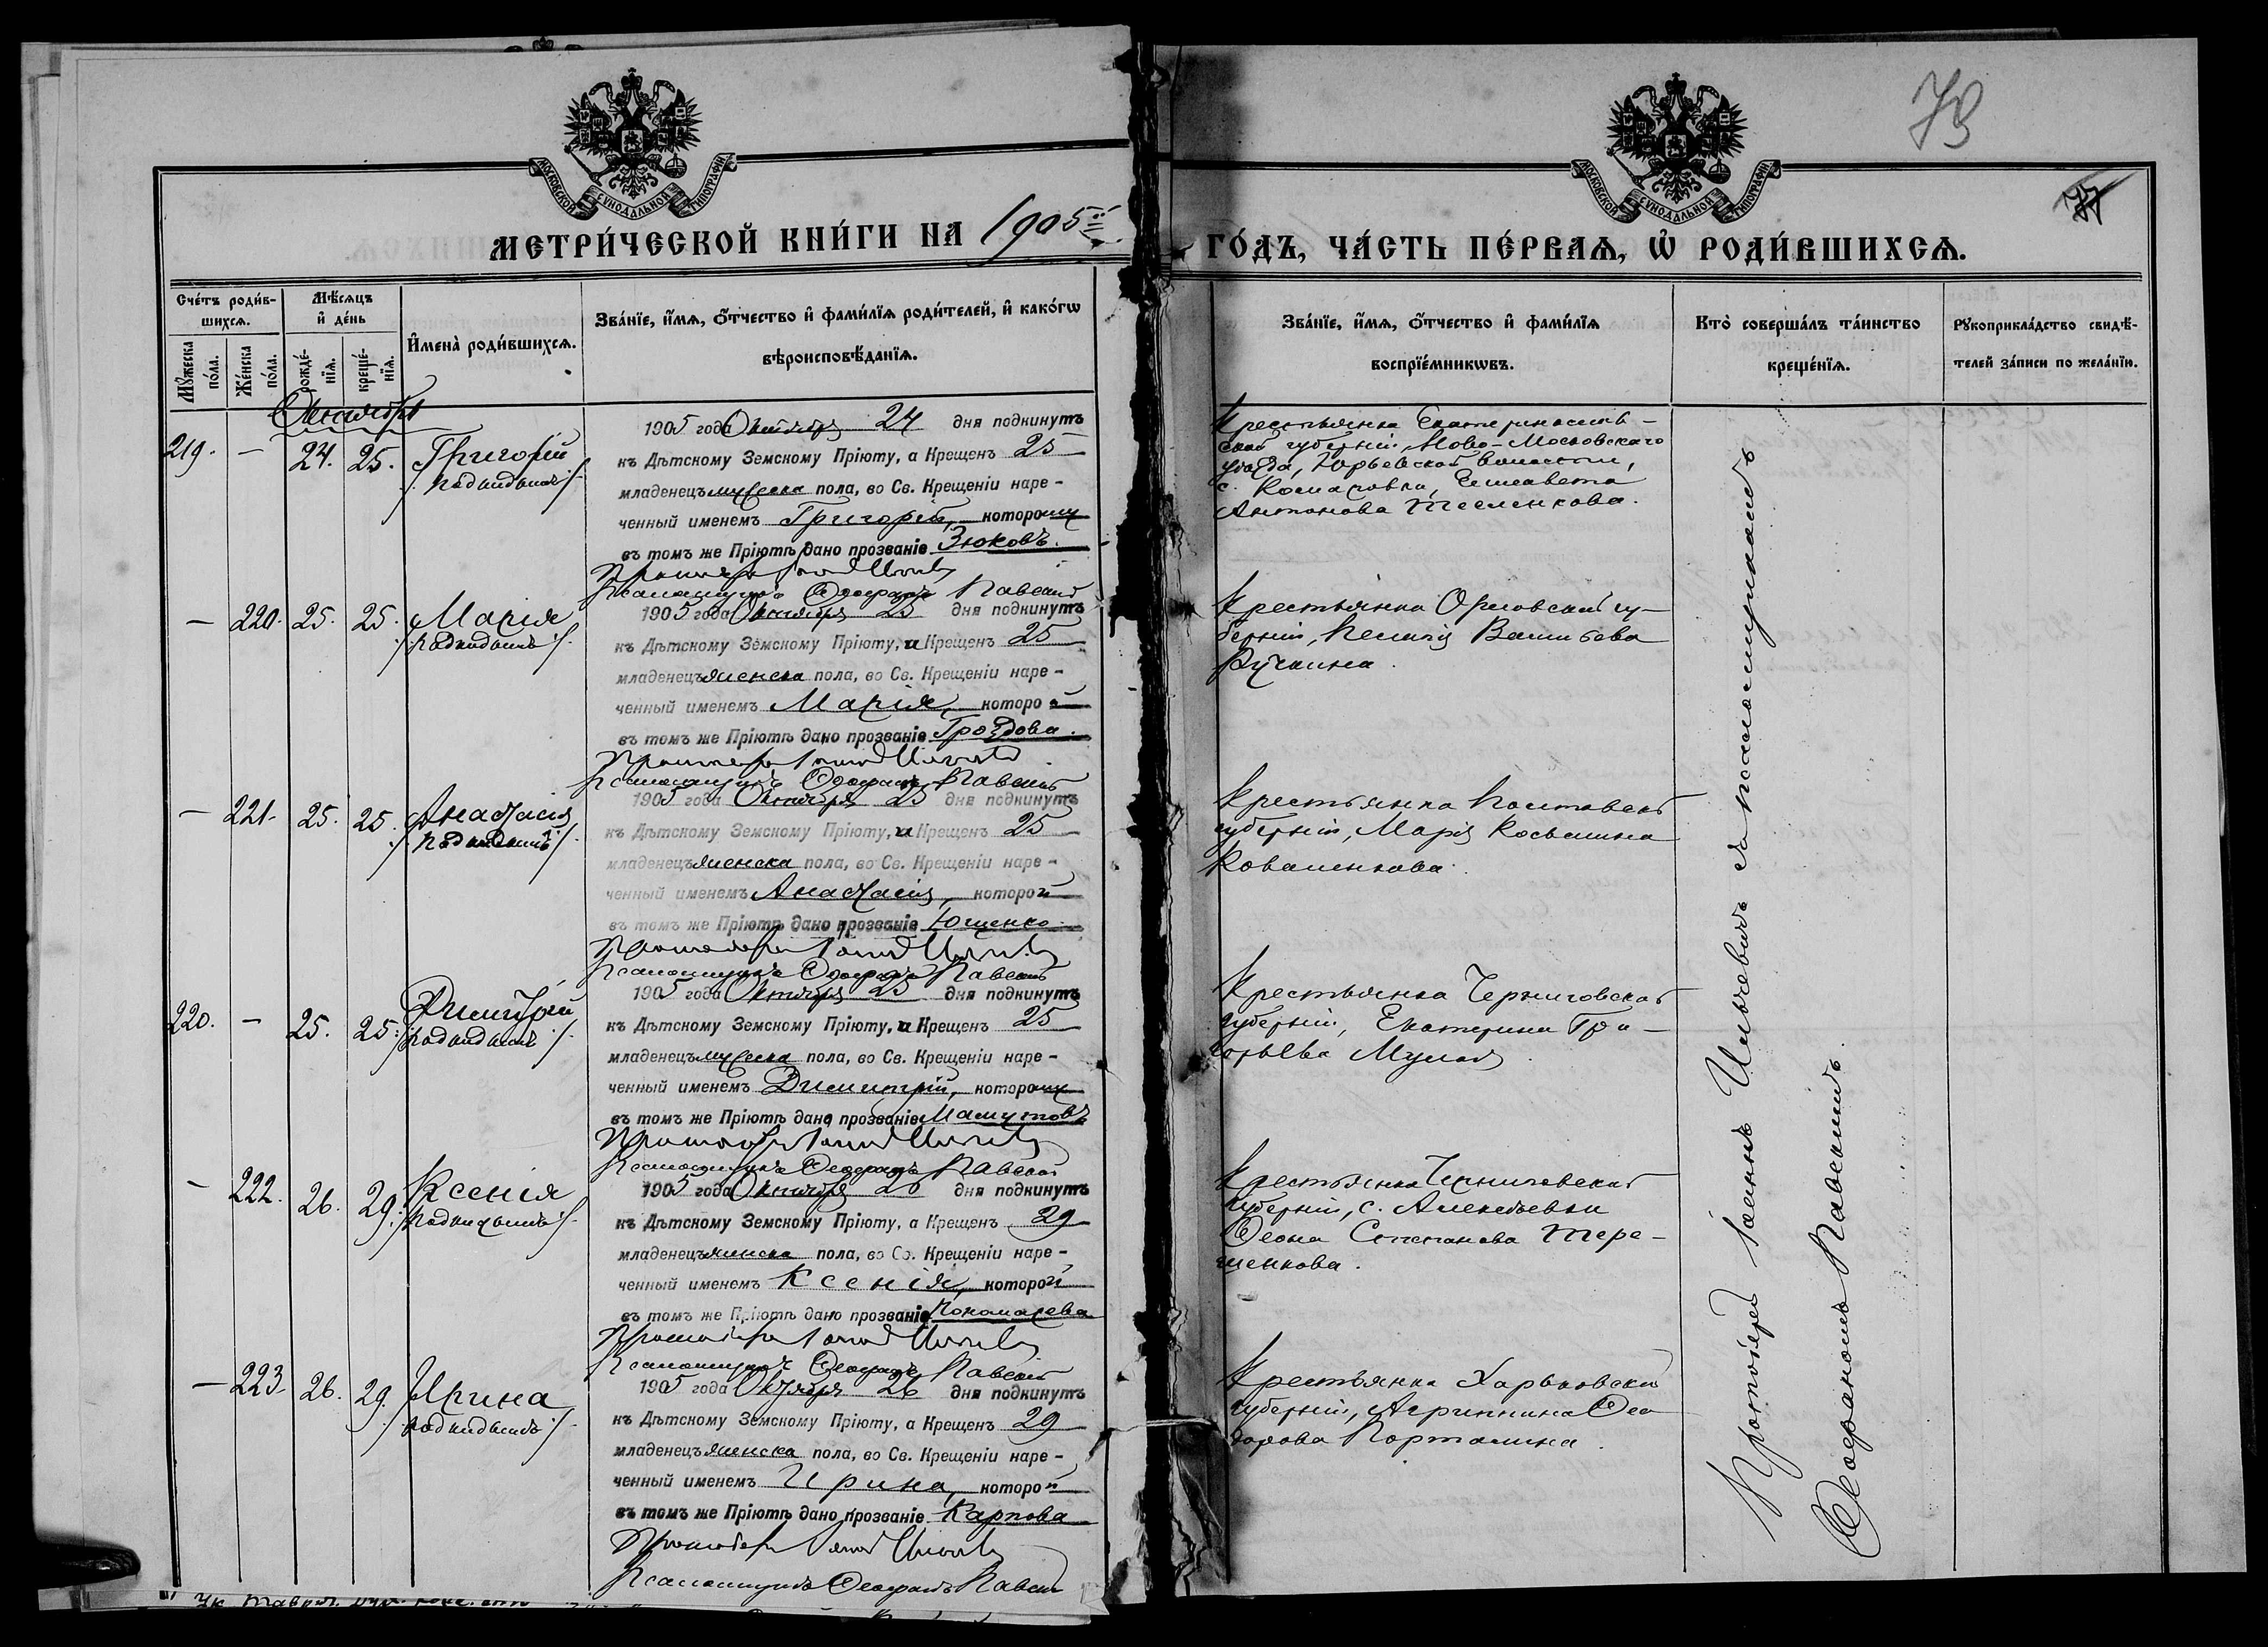 73
77
МОСКОВСКОЙ СѴНОДАЛЬНОЙ ТИПОГРАФІИ
МОСКОВСКОЙ СѴНОДАЛЬНОЙ ТИПОГРАФІИ
МЕТРИ́ЧЕСКОЙ КНИ́ГИ НА 1905й ГО́ДЪ, ЧА́СТЬ ПЕ́РВАѦ, Ѡ҆ РОДИ́ВШИХСѦ.
Сче́тъ роди́в-
шихсѧ.
Мꙋ́жеска по́ла.
Же́нска по́ла.
Мѣ́сѧцъ
и҆ де́нь
рожде́-
нїѧ.
креще́-
нїѧ.
И҆мена̀ роди́вшихсѧ.
Зва́нїе, и҆́мѧ, ѻ҆́тчество и҆ фами́лїѧ роди́телей, и҆ како́гѡ
вѣроисповѣ́данїѧ.
Зва́нїе, и҆́мѧ, ѻ҆́тчество и҆ фами́лїѧ
воспрїе́мникѡвъ.
Кто̀ соверша́лъ та́инство
креще́нїѧ.
Рꙋкоприкла́дство свидѣ́-
телей за́писи по жела́нїю.
Октября
219. — 24. 25. Григорій
/. подкидышъ ./.
1905 года Октября 24 дня подкинутъ
къ Дѣтскому Земскому Пріюту, а Крещенъ 25
младенецъ мужеска пола, во Св. Крещеніи наре-
ченный именемъ Григорій, которому
въ томъ же Пріютѣ дано прозваніе Зюковъ.
Протоіерей Іоаннъ
Псаломщикъ Ѳеофанъ Павскій
Крестьянка Екатеринослав-
ской губерніи, Ново-Московскаго
уѣзда, Юрьевской волости,
с. Комаровки, Елисавета
Антонова
— 220. 25. 25. Марія
/. подкидышъ ./.
1905 года Октября 25 дня подкинутъ
къ Дѣтскому Земскому Пріюту, и Крещенъ 25
младенецъ женска пола, во Св. Крещеніи наре-
ченный именемъ Марія, которой
въ томъ же Пріютѣ дано прозваніе Гроздова.
Протоіерей Іоаннъ
Псаломщикъ Ѳеофанъ Павскій
Крестьянка Орловской гу-
берніи, Васильева
— 221. 25. 25. Анастасія
/. подкидышъ ./.
1905 года Октября 25 дня подкинутъ
къ Дѣтскому Земскому Пріюту, и Крещенъ 25
младенецъ женска пола, во Св. Крещеніи наре-
ченный именемъ Анастасія, которой
въ томъ же Пріютѣ дано прозваніе Ющенко.
Протоіерей Іоаннъ
Псаломщикъ Ѳеофанъ Павскій
Крестьянка Полтавской
губерніи, Марія Косьмина
Коваленкова.
220. — 25. 25. Димитрій
/. подкидышъ ./.
1905 года Октября 25 дня подкинутъ
къ Дѣтскому Земскому Пріюту, и Крещенъ 25
младенецъ мужеска пола, во Св. Крещеніи наре-
ченный именемъ Димитрій, которому
въ томъ же Пріютѣ дано прозваніе
Протоіерей Іоаннъ
Псаломщикъ Ѳеофанъ Павскій
Крестьянка Черниговской
губерніи, Екатерина Гри-
горьева
— 222. 26. 29. Ксенія
/. подкидышъ ./.
1905 года Октября 26 дня подкинутъ
къ Дѣтскому Земскому Пріюту, а Крещенъ 29
младенецъ женска пола, во Св. Крещеніи наре-
ченный именемъ Ксенія, которой
въ томъ же Пріютѣ дано прозваніе Пономарева
Протоіерей Іоаннъ
Псаломщикъ Ѳеофанъ Павскій
Крестьянка Черниговской
губерніи, с. Алексѣевки
Ѳеона Степанова Тере-
щенкова.
— 223. 26. 29. Ирина
/. подкидышъ ./.
1905 года Октября 26 дня подкинутъ
къ Дѣтскому Земскому Пріюту, а Крещенъ 29
младенецъ женска пола, во Св. Крещеніи наре-
ченный именемъ Ирина, которой
въ томъ же Пріютѣ дано прозваніе Карпова
Протоіерей Іоаннъ
Псаломщикъ Ѳеофанъ Павскій
Крестьянка Харьковской
губерніи, Агриппина Ѳео-
дорова
Протоіерей Іоаннъ съ псаломщикомъ
Ѳеофаномъ Павскимъ.